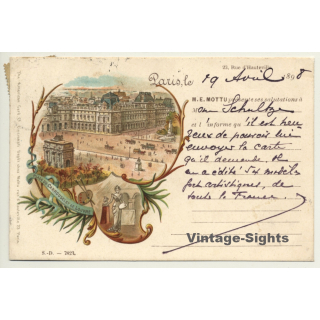 25, Rue d'Hauteville
Paris, le 19 Avril 1898
M. E. MOTTU présente ses salutations à
M Schultze
et l'informe qu'il est heu-
reux de pouvoir lui
envoyer la carte
qu'il demande. Il
en a édité 54 modèles
fort artistiques, de
toute la France.
Vintage-Sights